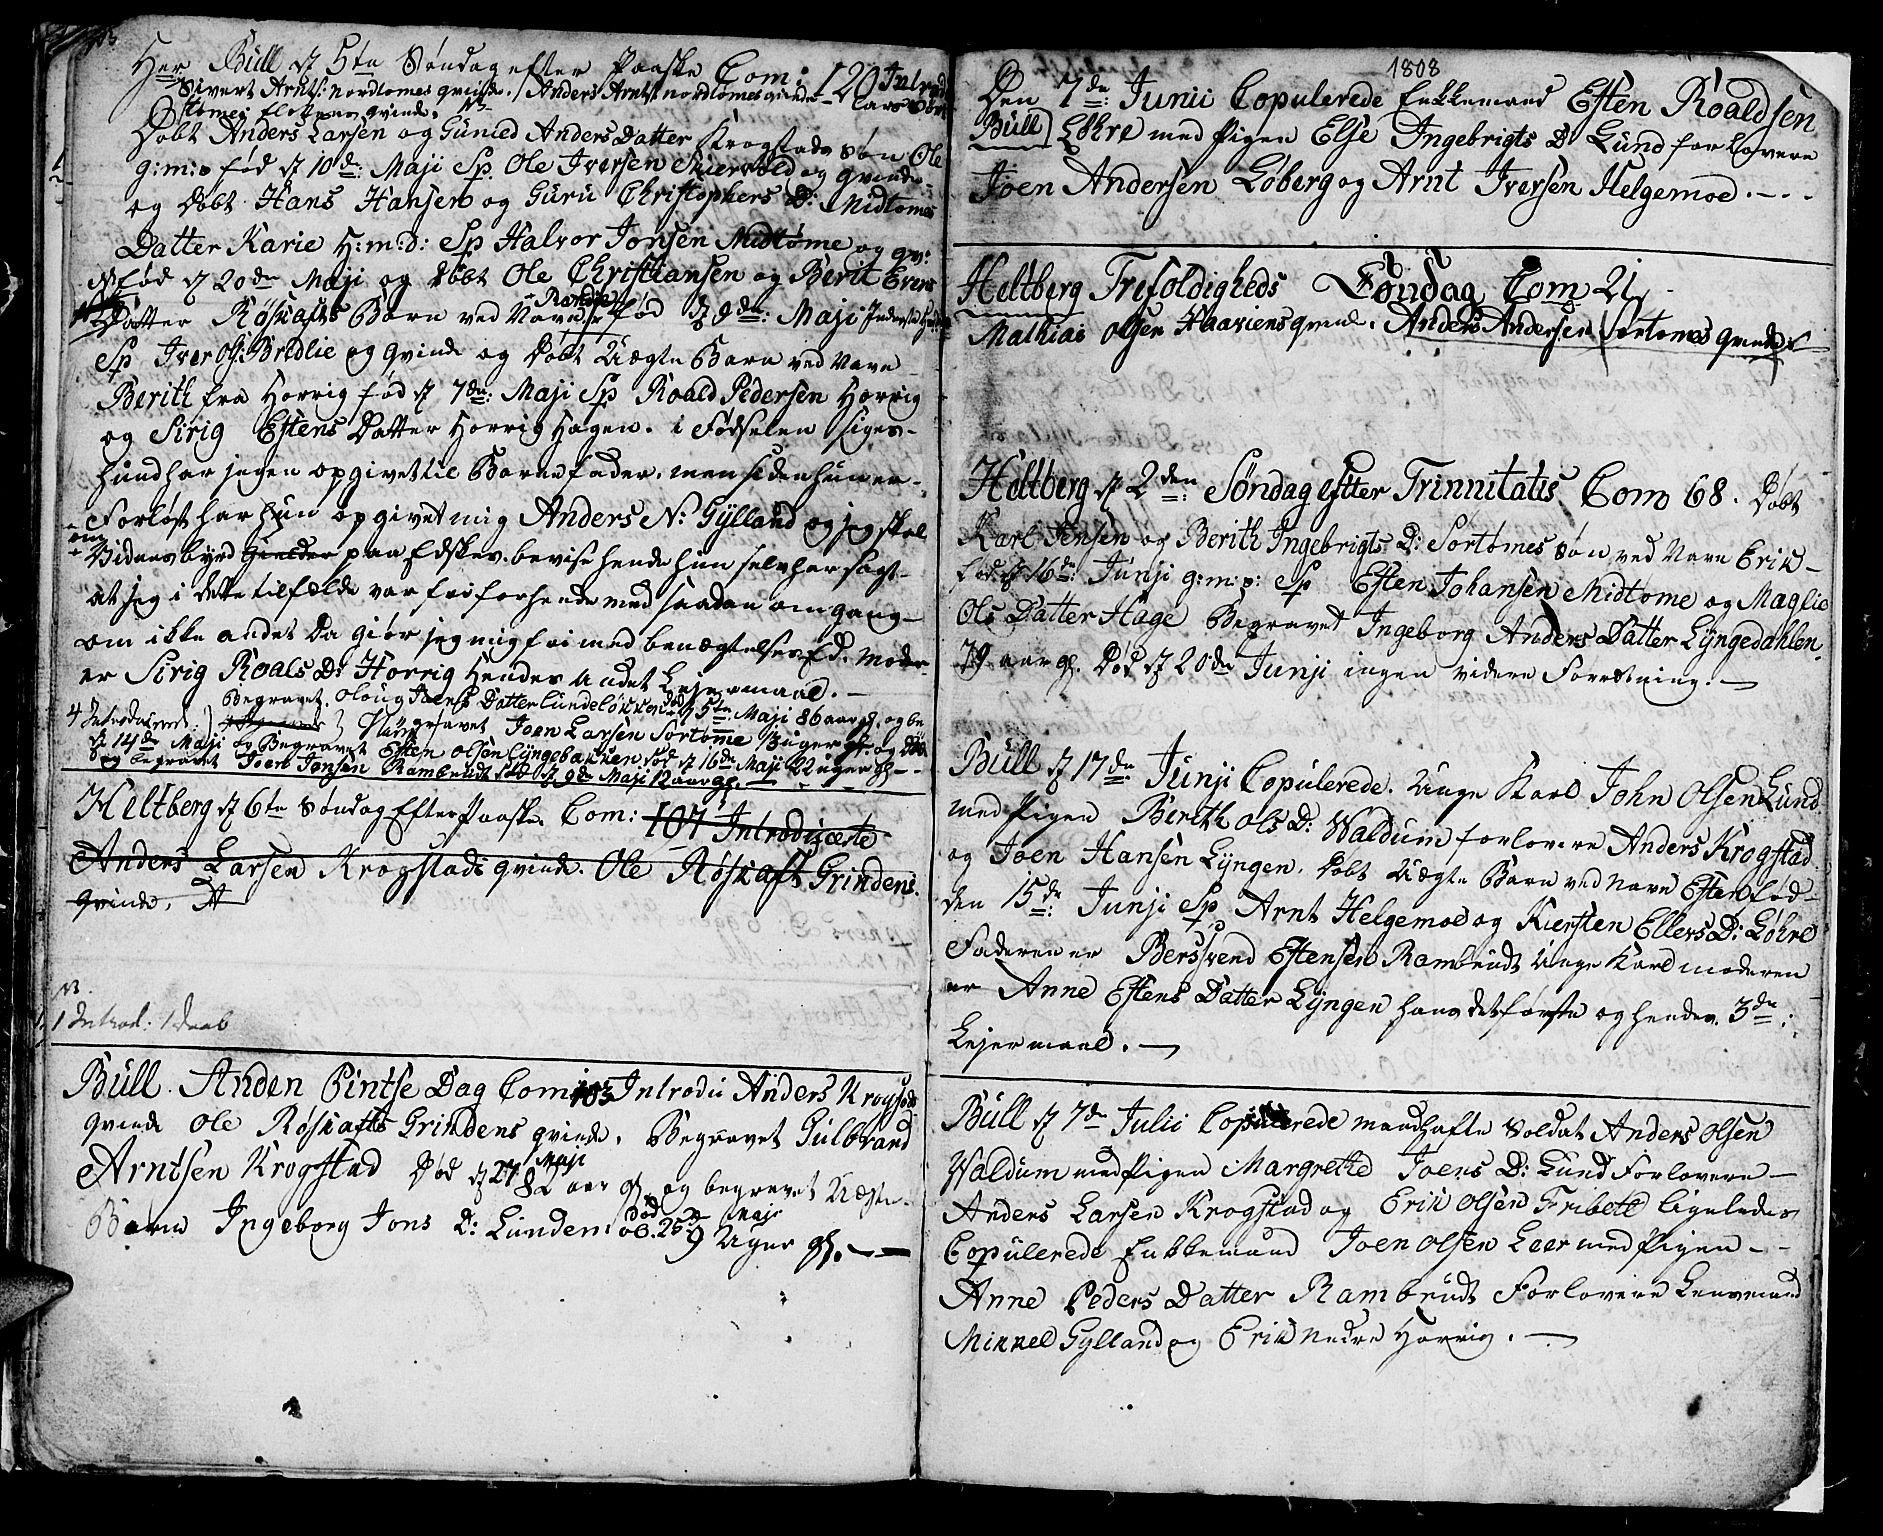 Her Bull d 5te Søndag efter Paaske Com: 120 Introd
Sivert Arnts: Nordtomes qvinde. Anders Arnts Nordtomes qvinde
Døbt Anders Larsen og Gunild Anders Datter Krogstads søn Ole
g:m:s fød d 10de: Maji Sp. Ole Iversen Skiervold og qvinde
og Døbt Hans Hansen og Guru Christophers D: Midtomes
Datter Karie H:m:d: Sp Halvor Jonsen Midtøme og qv:
fød d 20de Maji og Døbt Ole Christiansen og Berit Evens
Datter Røskafts Barn ved Navn Randi fød d 9de: Maji
Sp Iver Ols: Bredlie og qvinde og Døbt Uægte Barn ved Navn
Berith fra Horrig fød d 7de: Maji Sp Roald Pedersen Horrig
og Sirig Estens Datter Horrig Hagen. i Fødselen siges
hun har ingen opgivet til Barnefader. men siden hun er
Forløst har hun opgivet mig Anders N: Gylland og jeg skal
Vidnesbyrd paa Edskev. bevise hende hun selv har sagt
at jeg i dette tilfælde var fri for hende med saadan omgang
om ikke andet Da giør jeg mig fri med benægtelses Ed. Moder
er Sirig Roals D: Horrig Hendes Andet Lejermaal.
Begravet. Oloug Joens Datter Lundeløkken død d 5te Maji 86 aar gl. og be
4 Introducerede. gravet Joen Larsen Sortømme 13 uger gl. og Død
d 14de Maji og Begravet Esten Olsen Lyngebakken død d 16de Maji 22 uger gl
og begravet Joen Jonsen Rambeudt død d 9de Maji 12 aar gl.
Heltberg d 6te Søndag Efter Paaske. Com: 107 Introducerte
Anders Larsen Krogstads qvinde. Ole Røskaft Grindens
qvinde. A
1 Introd: 1 Daab
Bull. Anden Pintse Dag Com: 103 Introdu Anders Krogstads
qvinde Ole Røskafts Grindens qvinde. Begravet Gulbrand
Arntsen Krogstad Død d 27 Maji 82 aar gl. og begravet Uægte
Barn Ingeborg Jons D: Lundemo død d. 25de Maji 9 Uger gl.
1808
Den 7de: Junii Copulerede Enkkemand Esten Roaldsen
Bull Løhre med Pigen Else Ingebrigts D Lund forlovere
Joen Andersen Loberg og Arnt Iversen Helgemoe.
Heltberg Trefoldigheds Søndag Com 21
Mathias Olsen Kaaviens qvind. Anders Andersen Sortomes qvinde
Heltberg d 2den: Søndag efter Trinnitatis Com 68. Døbt
Karl Jensen og Berith Ingebrigts D: Sortomes søn ved Navn Erik
fød d 16de: Junji g:m:s: Sp Esten Johansen Midtome og Maglie
Ols Datter Hage Begravet Ingeborg Anders Datter Lyngedahlen
79 aar gl. Død d 20de Junji ingen videre Forretning.
Bull d 17de Junji Copulerede. Unge Karl John Olsen Lund
med Pigen Berith Ols D: Waldum forlovere Anders Krogstad
og Joen Hansen Lyngen. Døbt Uægte Barn ved Navn Esten fød
den 15de: Junji Sp Arnt Helgemoe og Kiersten Ellers D: Løhre
Faderen er Berssvend Estensen Rambeudt Unge Karl moderen
er Anne Estens Datter Lyngen hans det første og hendes. 3de:
Lejermaal.
Bull d 7de Julii Copulerede mandhafte Soldat Anders Olsen
Waldum med Pigen Margrethe Joens D: Lund Forlovere
Anders Larsen Krogstad og Erik Olsen Fribete ligeledes
Copulerede Enkkemand Joen Olsen Leer med Pigen
Anne Peders Datter Rambeudt Forlovere Lensmand
Mikkel Gylland og Erik Nedre Horrig.